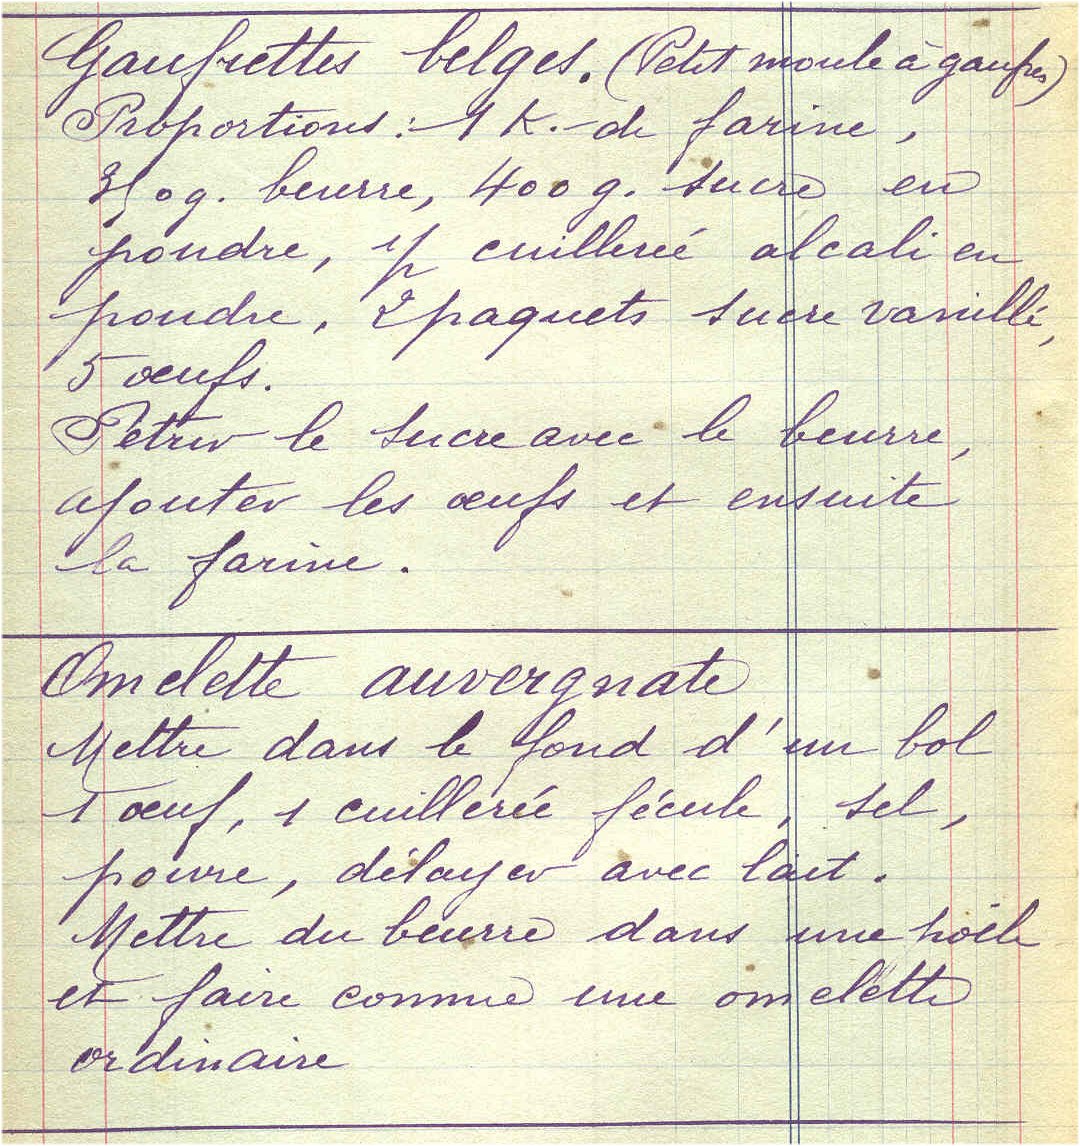 Gaufrettes belges. (Petit moule à gaufres)
Proportions : 1 K. de farine,
350g. beurre, 400g. sucre en
poudre, 1/2 cuillereé alcali en
poudre, 2 paquets sucre vanillé,
5 œufs.
Pétrir le sucre avec le beurre,
ajouter les œufs et ensuite
la farine.
Omelette auvergnate
Mettre dans le fond d'un bol
1 œuf, 1 cuillerée fécule, sel,
poivre, délayer avec lait.
Mettre du beurre dans une poële
et faire comme une omelette
ordinaire